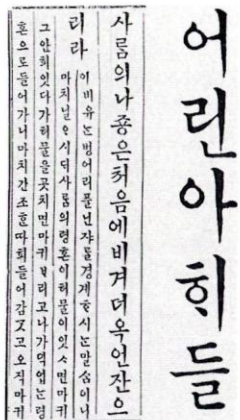 어린아ᄒᆡ들
사ᄅᆞᆷ의나죵은처음에비겨더옥언잔으
리라
이비유ᄂᆞᆫ벙어리들닌쟈ᄅᆞᆯ경계ᄒᆞ시ᄂᆞᆫ말ᄉᆞᆷ이니
마치닐ᄋᆞ시ᄃᆡ사ᄅᆞᆷ의령혼이허물이잇ᄉᆞ면마귀
그안희잇다가허물을곳치면마귀ᄇᆞ리고나가덕업ᄂᆞᆫ령
혼으로들어가니마치간조ᄒᆞᆫᄯᅡ희들어감ᄀᆞᆺ고오직마귀